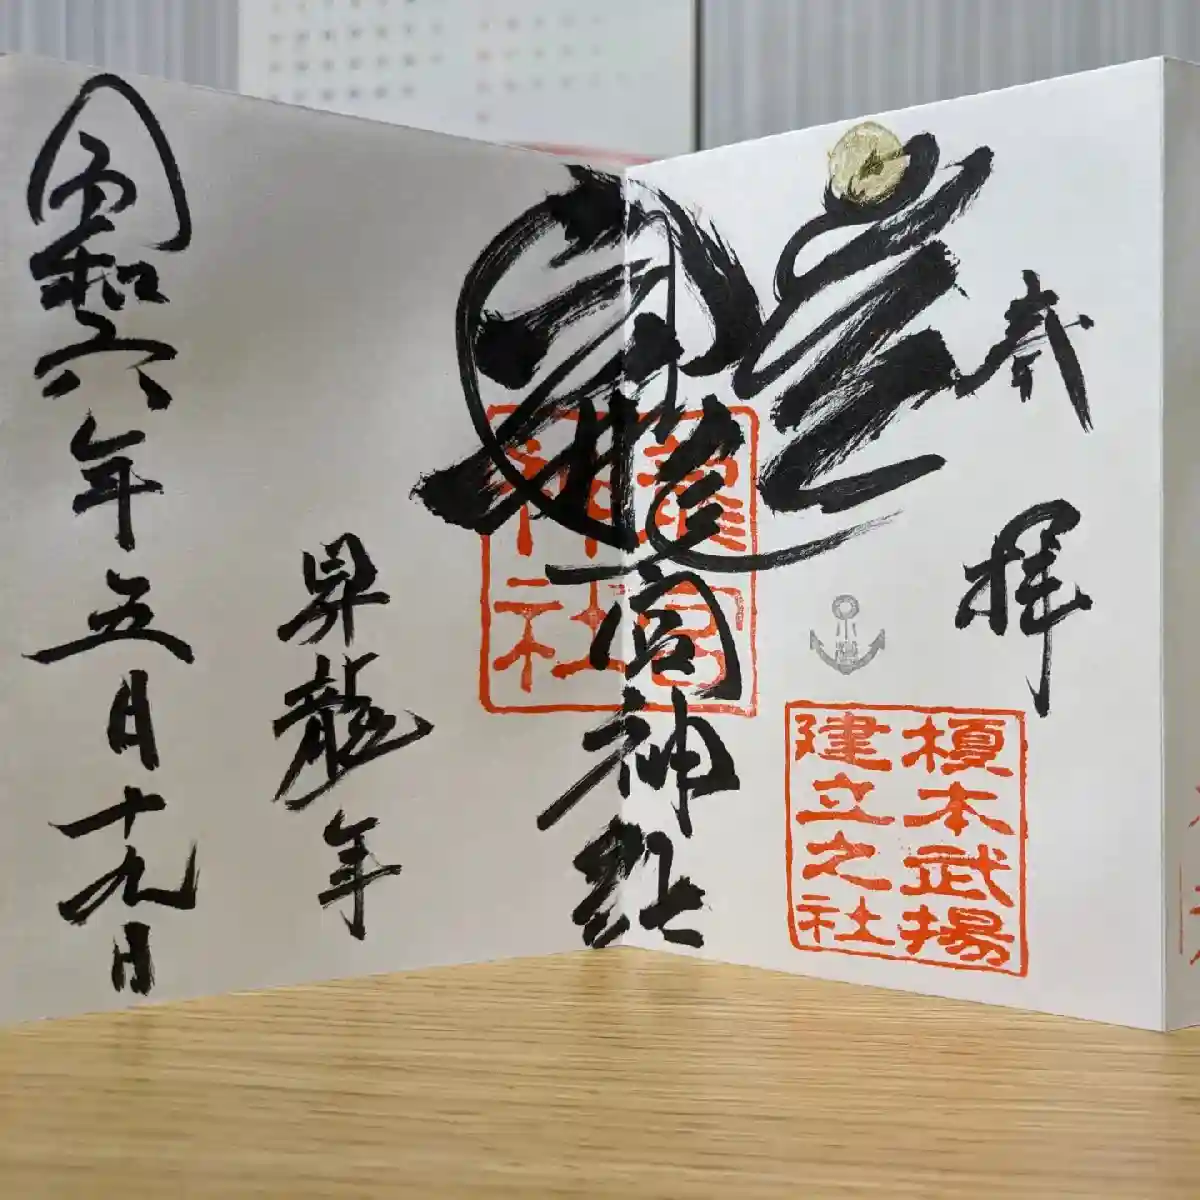 奉拝
龍宮神社
龍宮
神社
榎本武揚
建立之社
昇龍年
令和六年五月十九日